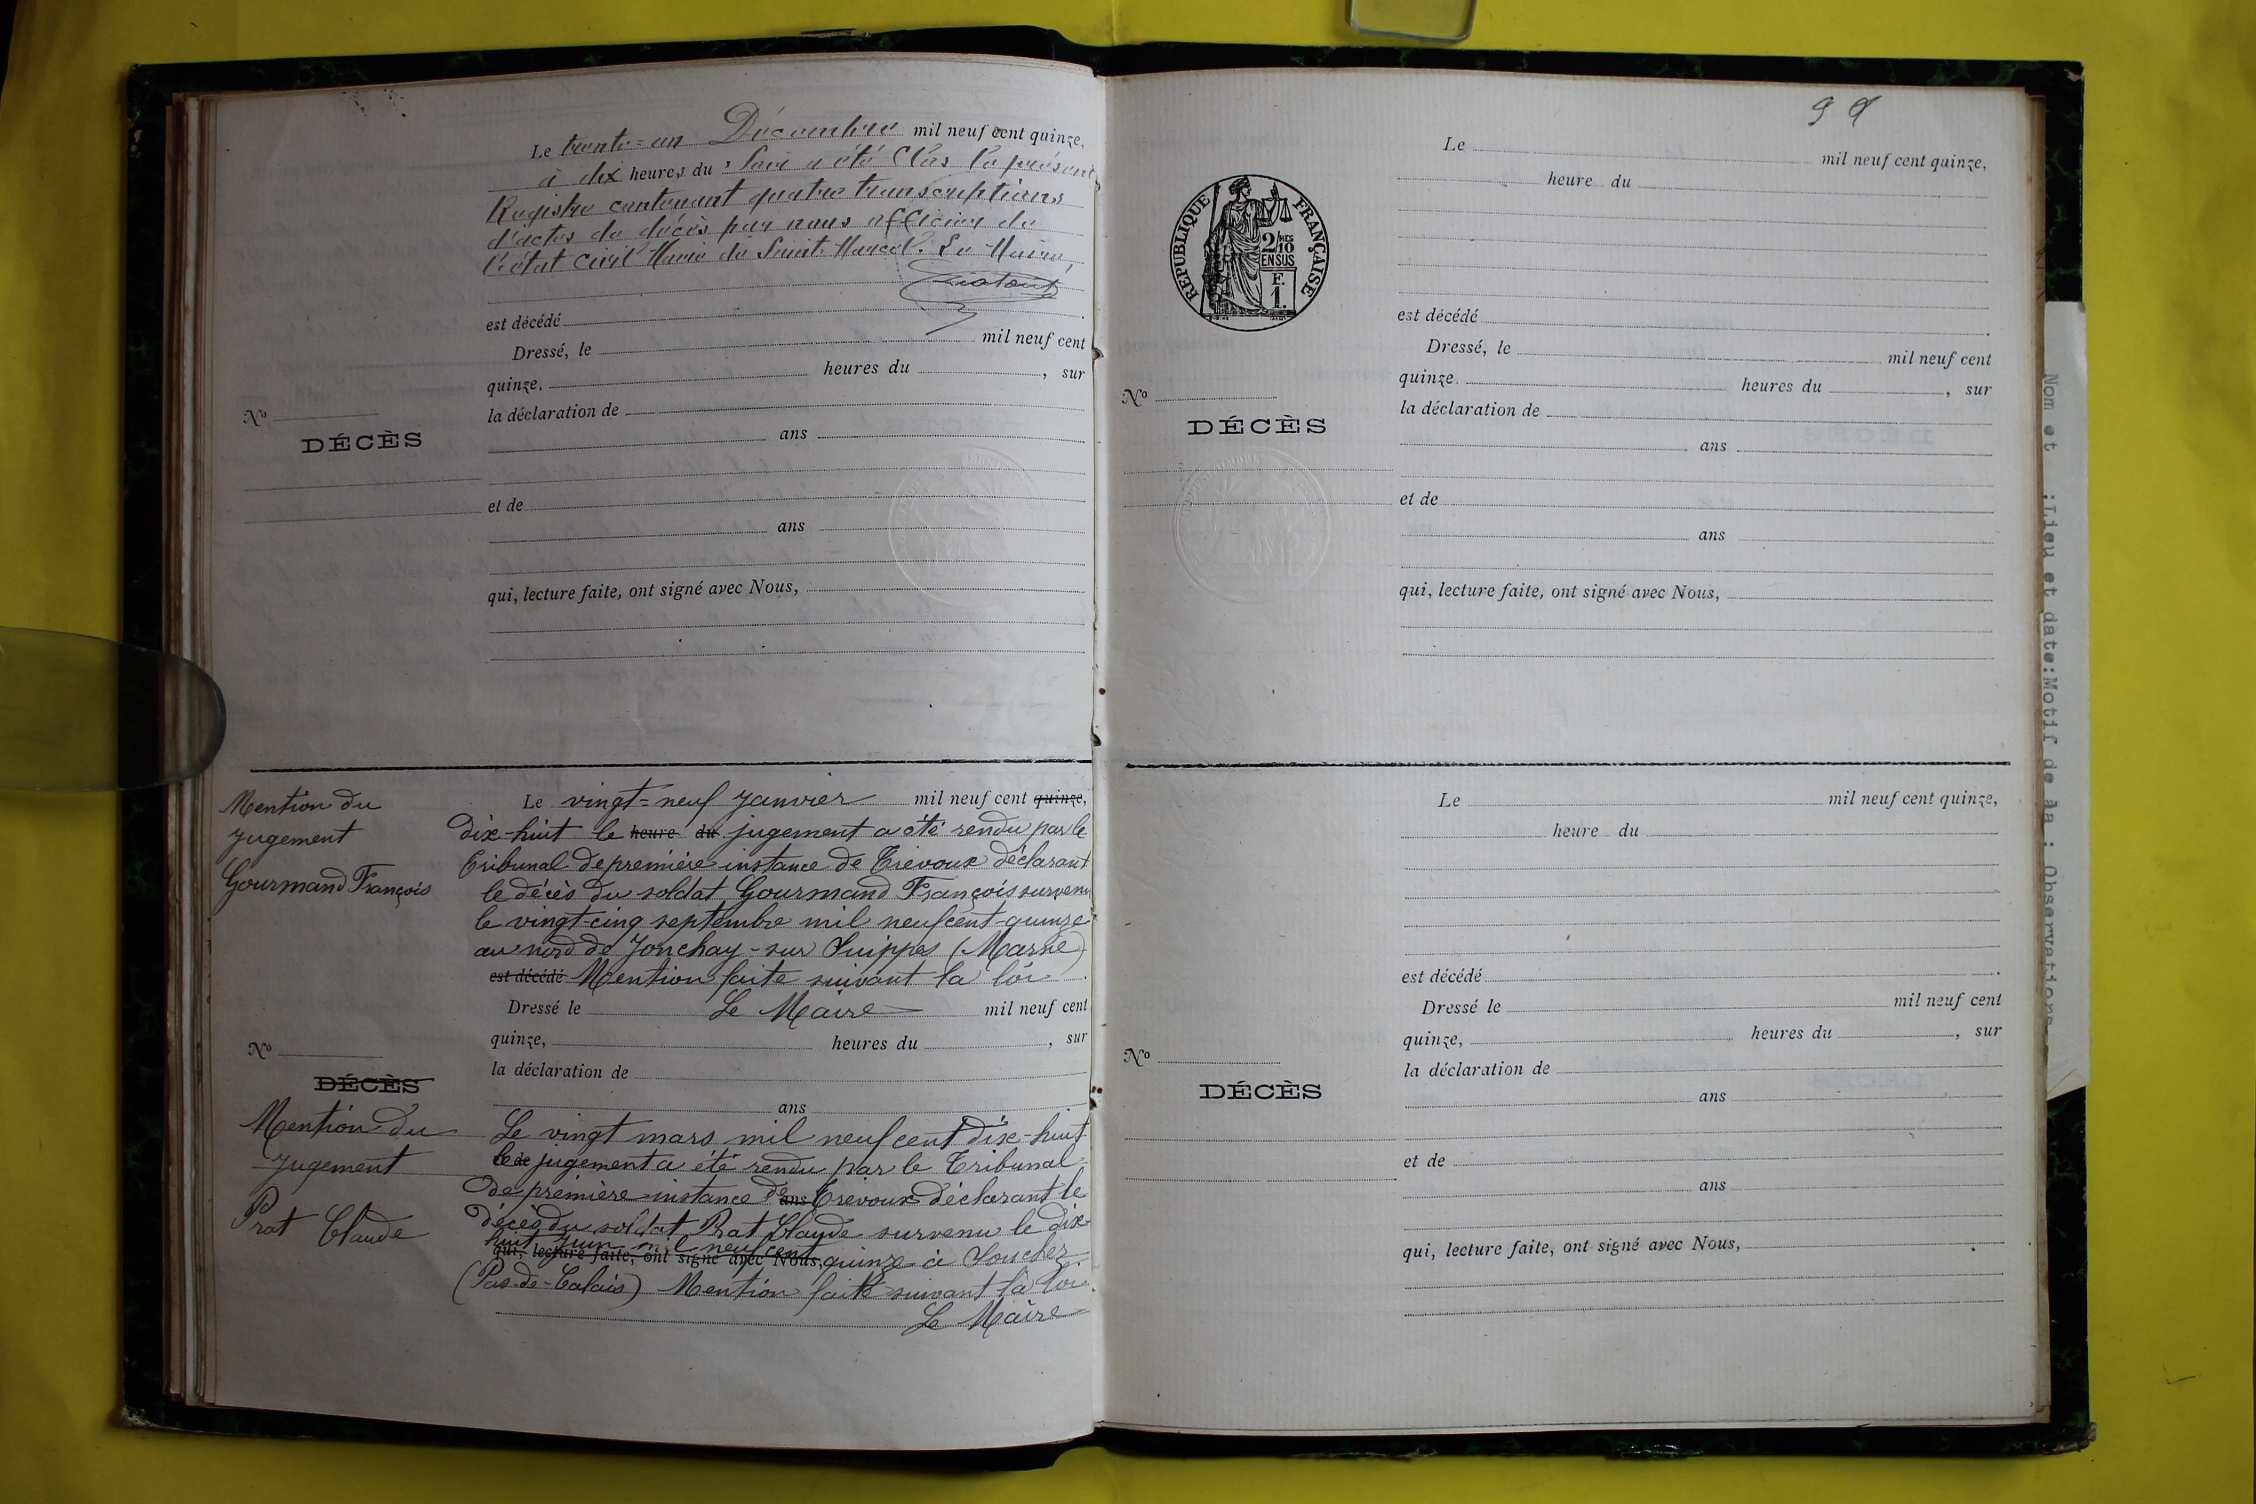 Le trente=un Décembre mil neuf cent quinze,
à dix heures du soir a été Clos le présent
Registre contenant quatre transcriptions
d'actes de décès par nous officier de
l'état civil Maire de Saint-Marcel. Le Maire,
est décédé
Dressé, le mil neuf cent
quinze, heures du , sur
la déclaration de
ans
et de
ans
qui, lecture faite, ont signé avec Nous,
Nº
DÉCÈS
Mention du
Jugement
Gourmand François
Le vingt=neuf Janvier mil neuf cent quinze,
dix-huit le heure du jugement a été rendu par le
Tribunal de première instance de Trévoux déclarant
le décès du soldat Gourmand François survenu
le vingt-cinq septembre mil neuf cent quinze
au nord de Jonchay-sur Suippes (Marne)
est décédé Mention faite suivant la loi
Dressé le Le Maire mil neuf cent
quinze, heures du , sur
la déclaration de
ans
Nº
DÉCÈS
Mention du
Jugement
Prat Claude
Le vingt mars mil neuf cent dix-huit
et de le jugement a été rendu par le Tribunal
de première instance de ans Trevoux déclarant le
décès du soldat Prat Claude survenu le dix
huit Juin mil neuf cent
qui, lecture faite, ont signé avec Nous, quinze à Souchez
(Pas-de-Calais) Mention faite suivant la loi.
Le Maire
9
Le mil neuf cent quinze,
heure du
RÉPUBLIQUE FRANÇAISE
2/10 MES
EN SUS
F.
1.
est décédé
Dressé, le mil neuf cent
quinze. heures du , sur
la déclaration de
ans
et de
ans
qui, lecture faite, ont signé avec Nous,
Nº
DÉCÈS
Le mil neuf cent quinze,
heure du
est décédé
Dressé le mil neuf cent
quinze, heures du , sur
la déclaration de
ans
et de
ans
qui, lecture faite, ont signé avec Nous,
Nº
DÉCÈS
Nom et :Lieu et date:Motif de la : Observations